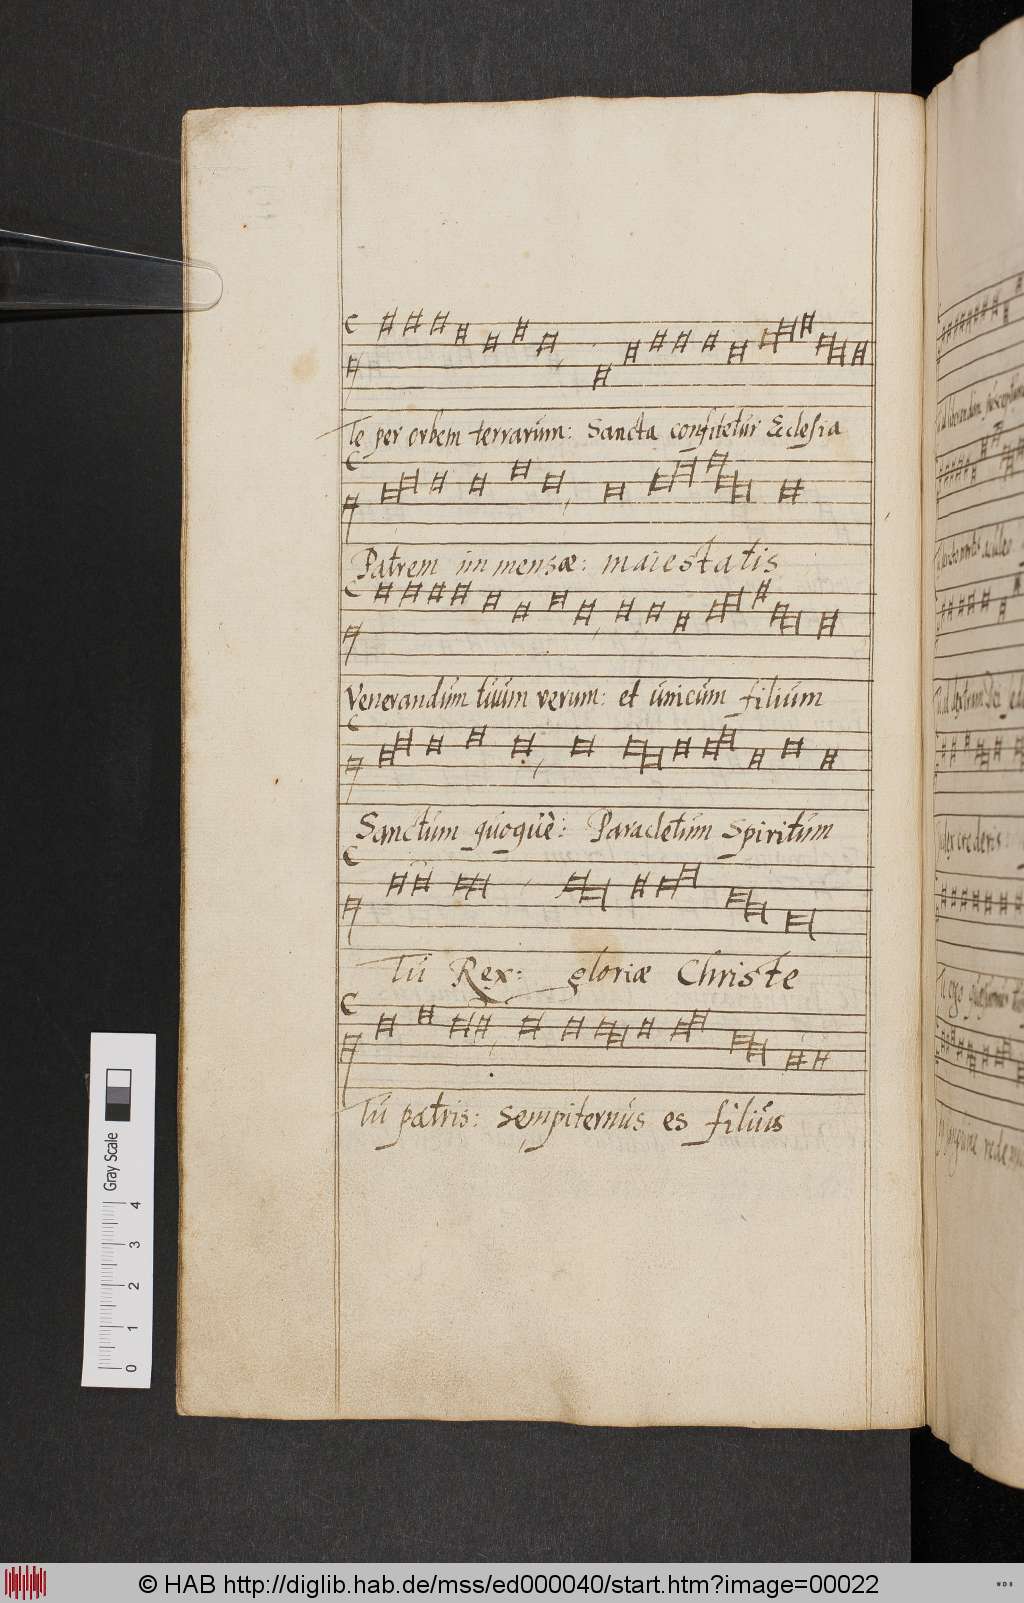 Te per orbem terrarum: Sancta confitetur Ecclesia
Patrem immensæ: maiestatis
Venerandum tuum verum: et unicum filium
Sanctum quoquè: Paracletum Spiritum
Tu Rex: gloriæ Christe
Tu patris: sempiternus es filius
Gray Scale
0 1 2 3 4
© HAB http://diglib.hab.de/mss/ed000040/start.htm?image=00022